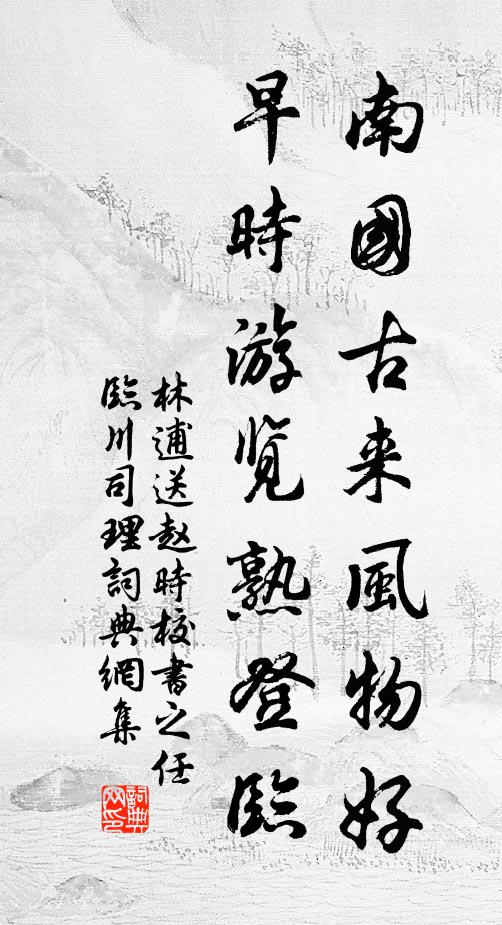 南國古来風物好
早時游览熟登臨
林逋送赵時校書之任
臨川司理詞典網集
詞典网印